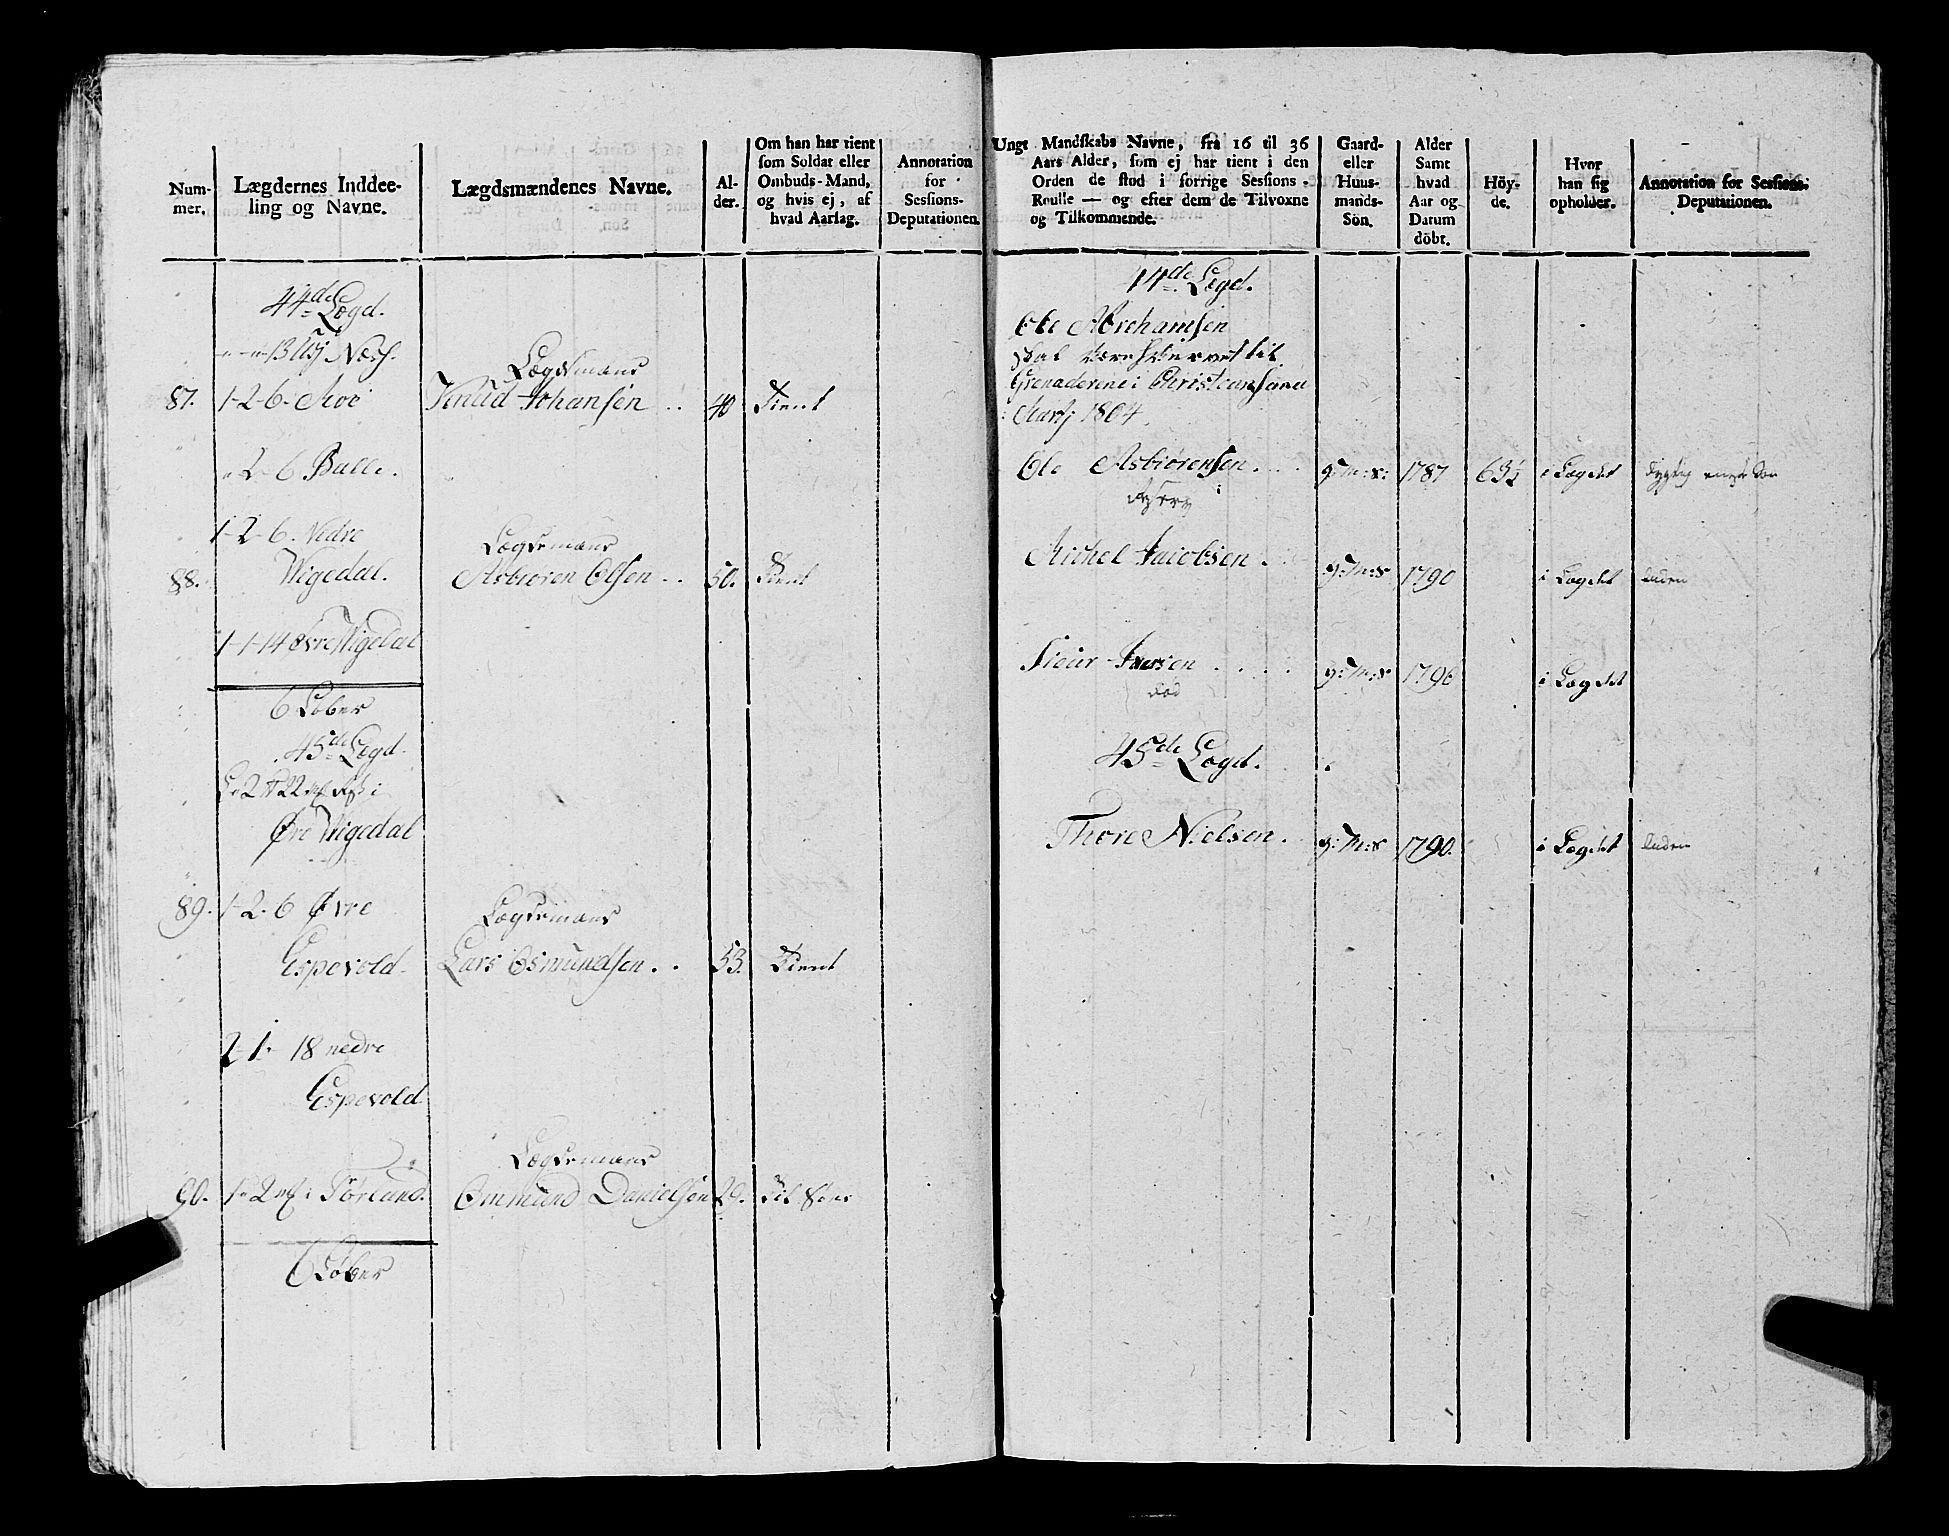 Num-
mer.
Lægdernes Inddee-
ling og Navne.
Lægdsmændenes Navne.
Al-
der.
Om han har tient
som Soldat eller
Ombuds-Mand,
og hvis ej, af
hvad Aarsag.
Annotation
for
Sessions-
Deputationen.
44de Lægd.
Næss.
Lægdsmand
87. 1-2-6- Moi Knud Johansen .. 40 Tient
-2-6 Balle.
1-2-6. Nedre
Lægdsmand
88. Wigedal. Asbiøren Olsen .. 50. Tient
1-1-14 Øvre Wigedal
6 Løber
45de Lægd.
i
Øvre Wigedal
89. 1-2-6 Øvre
Lægdsmand
Espevold. Lars Osmundsen .. 53. Tient
2-1- 18 nedre
Espevold
Lægdsmand
90. i Tørland. Ommund Danielsen
6 Løber
Ungt Mandskabs Navne, fra 16 til 36
Aars Alder, som ej har tient i den
Orden de stod i forrige Sessions-
Roulle — og efter dem de Tilvoxne
og Tilkommende.
Gaard-
eller
Huus-
mands-
Sön.
Alder
Samt
hvad
Aar og
Datum
döbt.
Höy-
de.
Hvor
han sig
opholder.
Annotation for Sessions-
Deputationen.
44de Lægd.
Ole Abrehamsen
skal være hvervet til
Grenaderene i Christiansand
Martj 1804.
Ole Asbiørensen .... g:M:s: 1787 63½ i Lægdet
Michel Jacobsen .. g:M:s 1790 i Lægdet liden
Siver Iversen ..... g:M:s 1796 i Lægdet
død
45de Lægd.
Thore Nielsen. g:M:s 1790. i Lægdet liden